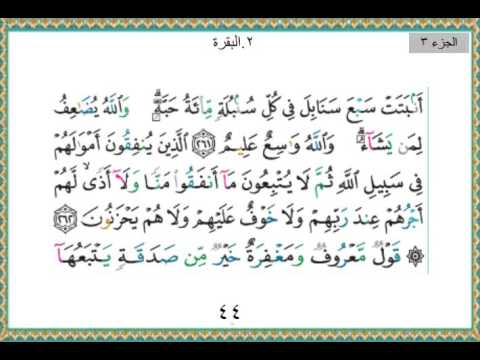 الجزء ٣
٢.البقرة
أَنۢبَتَتْ سَبْعَ سَنَابِلَ فِى كُلِّ سُنۢبُلَةٍ مِّائَةُ حَبَّةٍ ۗ وَاللَّهُ يُضَاعِفُ
لِمَن يَشَآءُ ۗ وَاللَّهُ وَاسِعٌ عَلِيمٌ ﴿٢٦١﴾ الَّذِينَ يُنفِقُونَ أَمْوَالَهُمْ
فِى سَبِيلِ اللَّهِ ثُمَّ لَا يُتْبِعُونَ مَآ أَنفَقُوا مَنًّا وَلَآ أَذًى ۙ لَّهُمْ
أَجْرُهُمْ عِندَ رَبِّهِمْ وَلَا خَوْفٌ عَلَيْهِمْ وَلَا هُمْ يَحْزَنُونَ ﴿٢٦٢﴾
۞ قَوْلٌ مَّعْرُوفٌ وَمَغْفِرَةٌ خَيْرٌ مِّن صَدَقَةٍ يَتْبَعُهَآ
٤٤